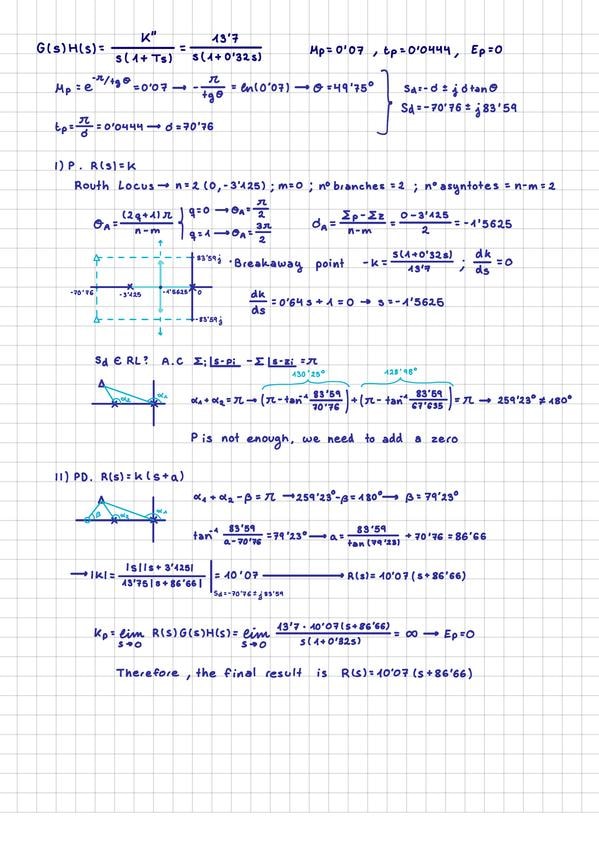 G(s)H(s) = K'' / s(1+Ts) = 13'7 / s(1+0'32s)    Mp=0'07 , tp=0'0444 , Ep=0
Mp = e^(-π/tgθ) = 0'07 → -π/tgθ = ln(0'07) → θ = 49'75°    Sd=-σ ± jσtanθ
Sd=-70'76 ± j83'59
tp = π/σ = 0'0444 → σ = 70'76
I) P. R(s)=K
Routh Locus → n=2 (0,-3'125) ; m=0 ; nº branches = 2 ; nº asyntotes = n-m = 2
θA = (2q+1)π / n-m { q=0 → θA = π/2    σA = Σp-Σz / n-m = 0-3'125 / 2 = -1'5625
q=1 → θA = 3π/2
83'59j · Breakaway point -K = s(1+0'32s) / 13'7 ; dk/ds = 0
-70'76 -3'125 -1'5625 0
-83'59j
dk/ds = 0'64s + 1 = 0 → s=-1'5625
Sd ∈ RL? A.C Σi∠s-pi - Σ∠s-zi = π
130'25° 128'98°
α2 α1 α1+α2 = π → (π-tan⁻¹ 83'59/70'76) + (π-tan⁻¹ 83'59/67'635) = π → 259'23° ≠ 180°
P is not enough, we need to add a zero
II) PD. R(s) = k(s+a)
β α2 α1 α1 + α2 - β = π → 259'23° - β = 180° → β = 79'23°
tan⁻¹ 83'59 / a-70'76 = 79'23° → a = 83'59 / tan(79'23) + 70'76 = 86'66
→ |K| = |s||s+3'125| / 13'75|s+86'66| | = 10'07 → R(s)= 10'07 (s+86'66)
Sd=-70'76 ± j83'59
Kp = lim s→0 R(s)G(s)H(s) = lim s→0 13'7 · 10'07(s+86'66) / s(1+0'32s) = ∞ → Ep=0
Therefore , the final result is R(s)=10'07 (s+86'66)